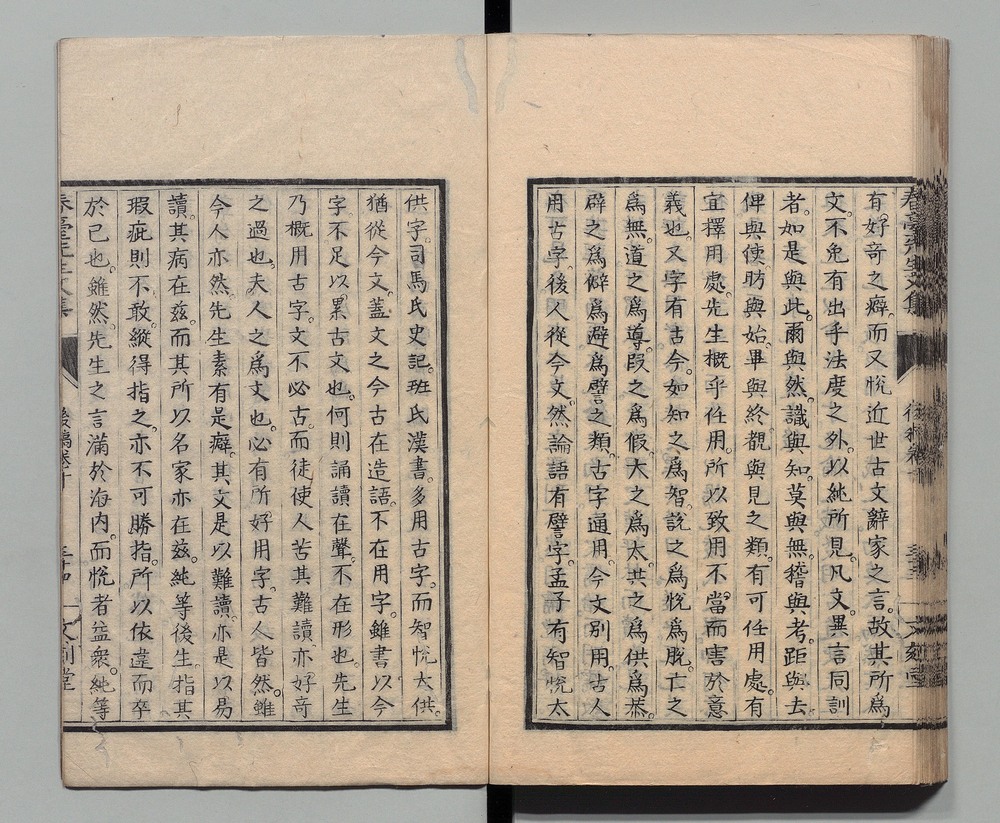 有好奇之癖。而又悅近世古文辭家之言。故其所爲
文。不免有出乎法度之外。以純所見。凡文。異言同訓
者。如是與此。爾與然。識與知。莫與無。稽與考。距與去。
俾與使。昉與始。畢與終。覩與見之類。有可任用處。有
宜擇用處。先生概乎任用。所以致用不當。而害於意
義也。又字有古今。如知之爲智。說之爲悅爲脫。亡之
爲無。道之爲導。叚之爲假。大之爲太。共之爲供爲恭。
辟之爲僻爲避爲譬之類。古字通用。今文別用。古人
用古字。後人從今文。然論語有譬字。孟子有智悅太
供字。司馬氏史記。班氏漢書。多用古字。而智悅太供。
猶從今文。蓋文之今古在造語。不在用字。雖書以今
字。不足以累古文也。何則誦讀在聲。不在形也。先生
乃概用古字。文不必古。而徒使人苦其難讀。亦好奇
之過也。夫人之爲文也。必有所好用字。古人皆然。雖
今人亦然。先生素有是癖。其文是以難讀。亦是以易
讀。其病在茲。而其所以名家亦在茲。純等後生。指其
瑕疵則不敢。縱得指之。亦不可勝指。所以依違而卒
於已也。雖然。先生之言滿於海内。而悅者益衆。純等
春臺先生文集
後稿卷十
三十四